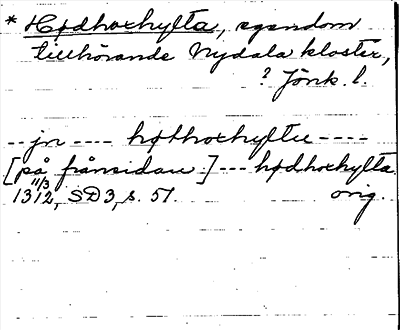 * Hødhorhylta, egendom
tillhörande Nydala kloster,
? Jönk. l.
-- jn ---- høthorhyltu ----
[på frånsidan:] --- hødhorhylta
11/3
1312, SD3, s. 51. orig.